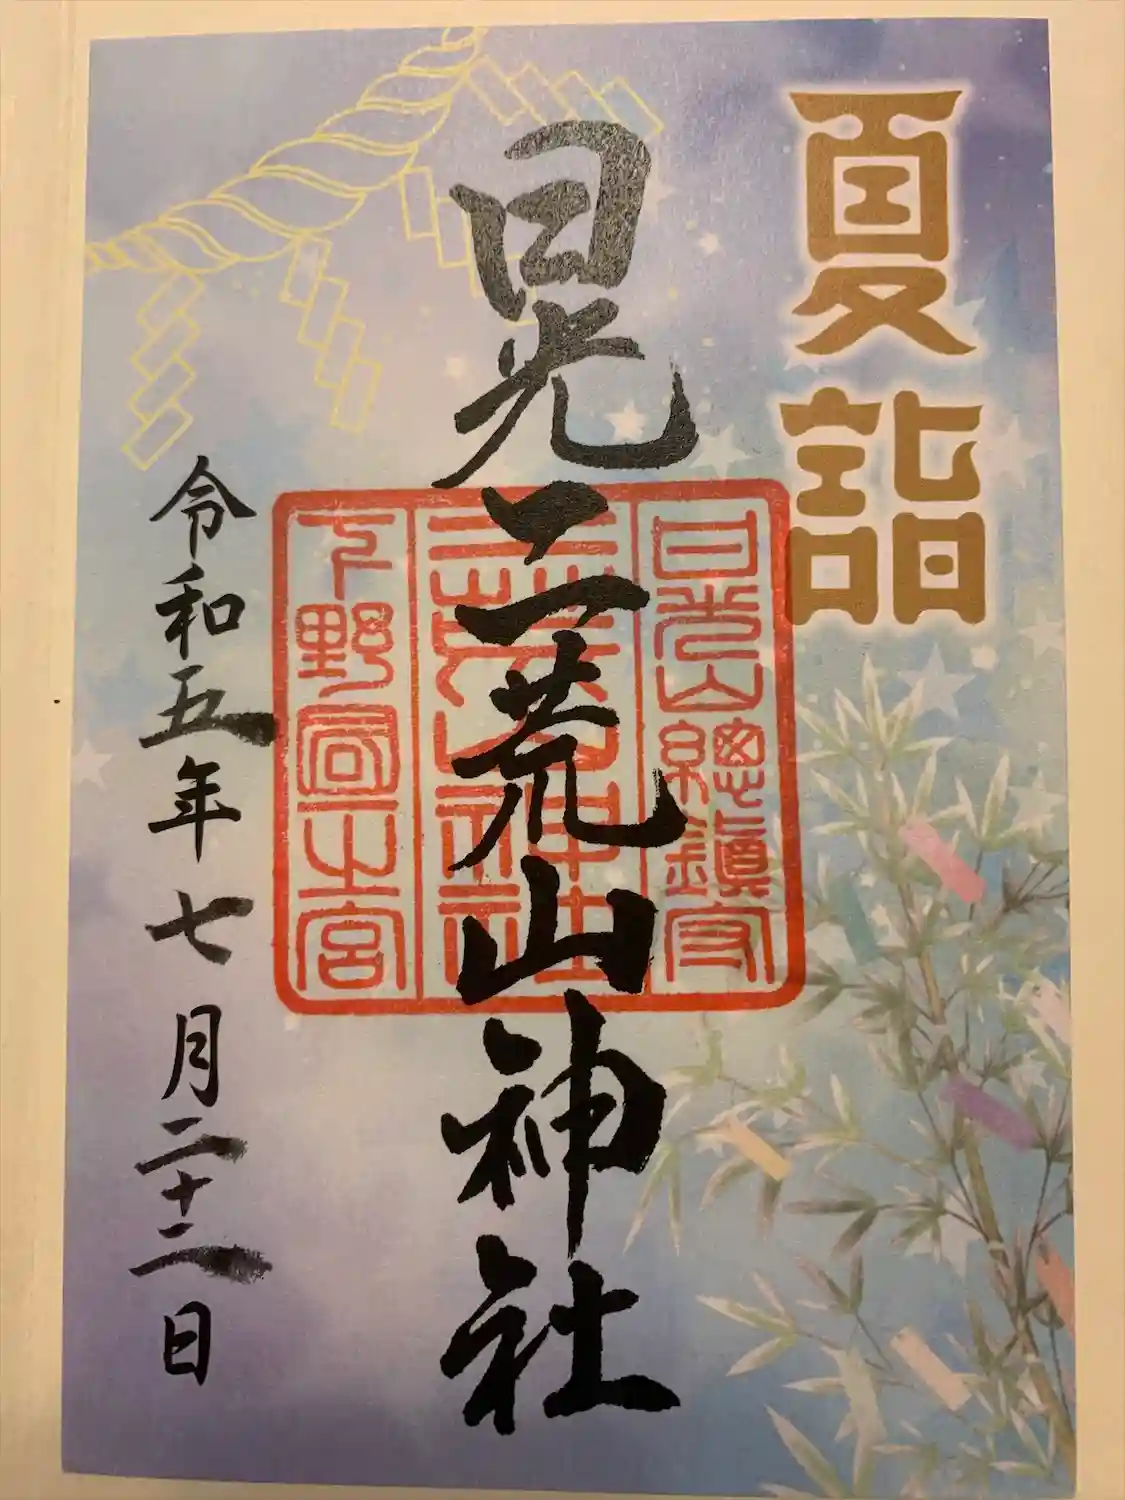 夏詣
日光二荒山神社
日光山總鎮守
二荒山神社
下野國一之宮
令和五年七月二十二日